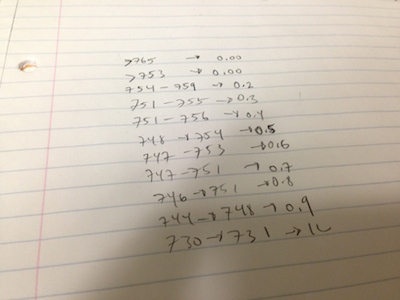 >765 → 0.00
>753 → 0.00
754 - 759 → 0.2
751 - 755 → 0.3
751 - 756 → 0.4
748 → 754 → 0.5
747 - 753 → 0.6
747 - 751 → 0.7
746 → 751 → 0.8
744 → 748 → 0.9
730 → 731 →